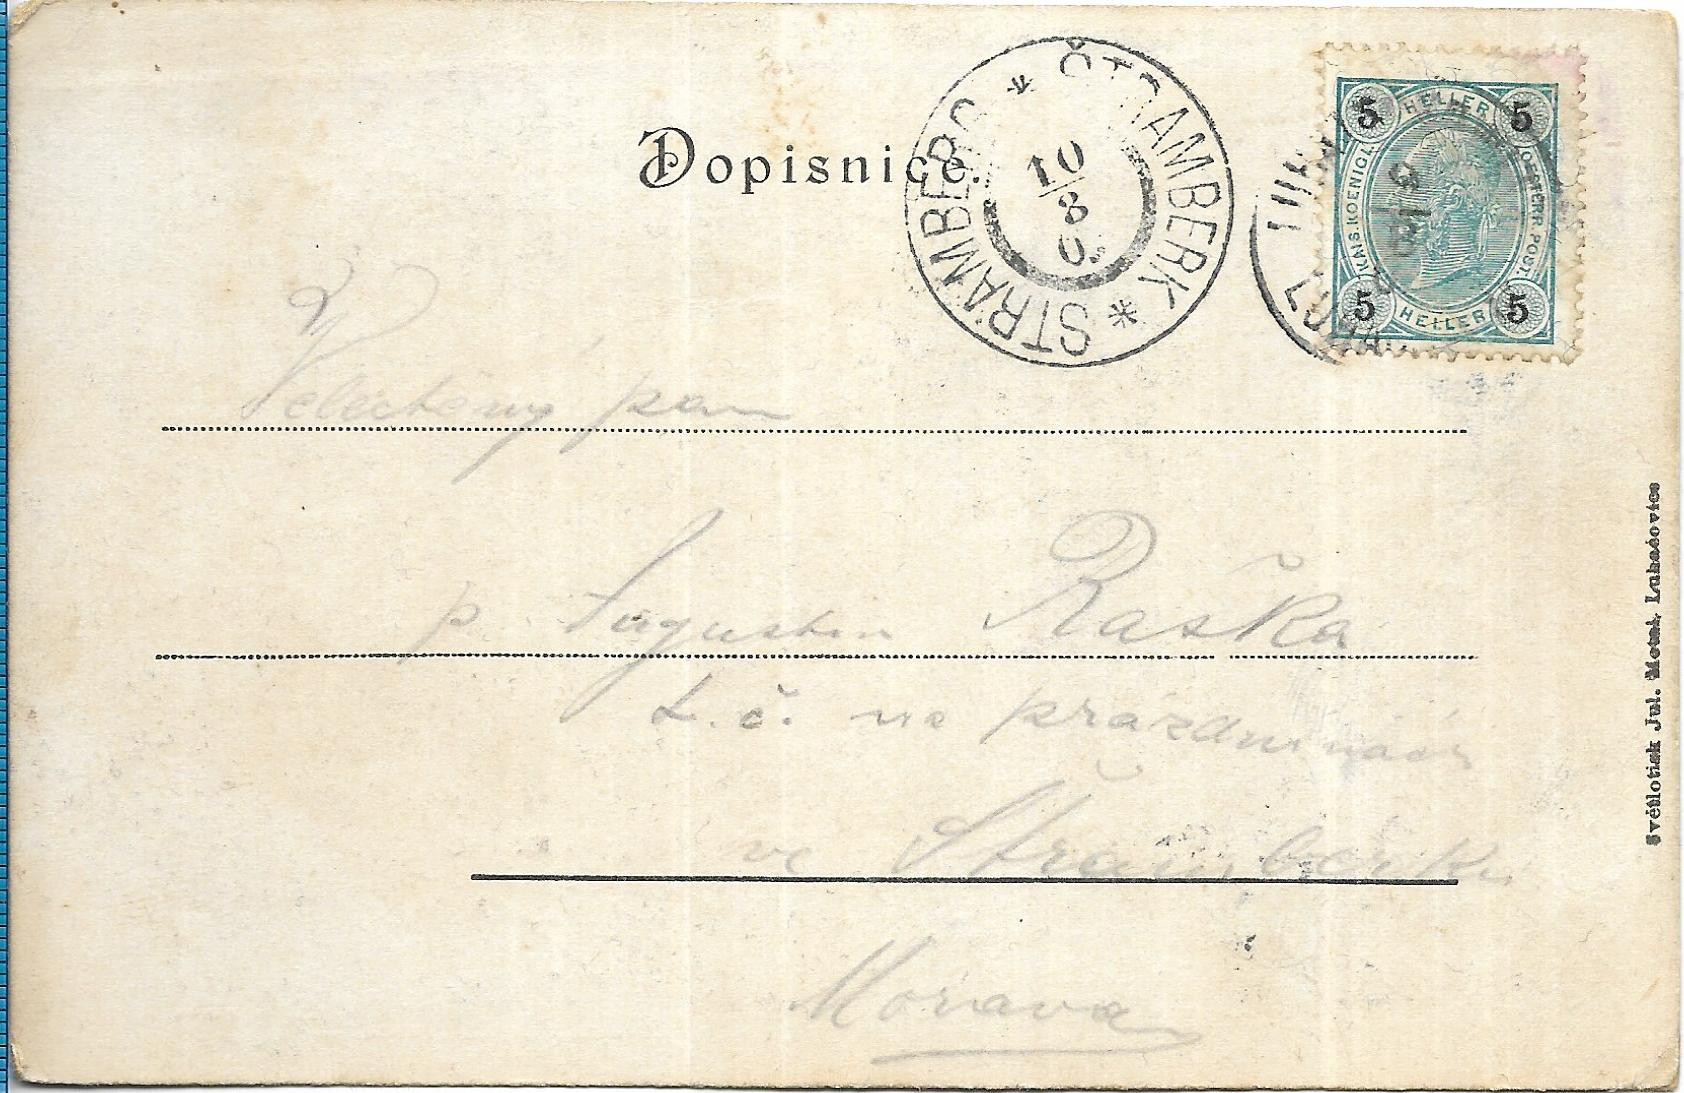 Dopisnice.
ŠTRAMBERK * STRAMBERG *
10
8
5 HELLER 5
KAIS. KOENIGL. OESTERR. POST.
5 HELLER 5
Velectěný pan
p Augustin Raška
t. č. na prázdninách
ve Štramberku
Morava
Světlotisk Jul. Luhačovice